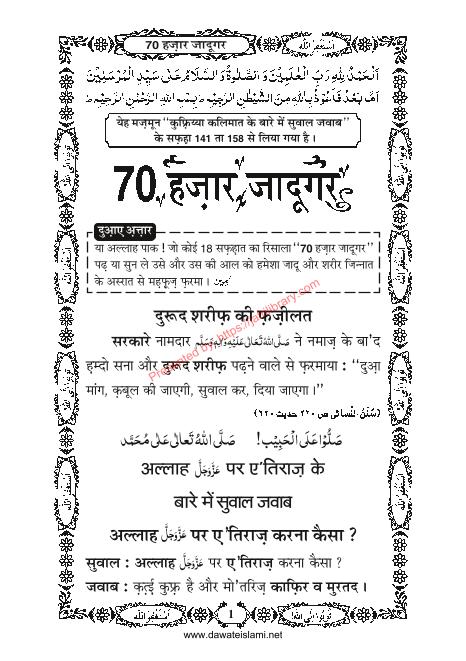 70 हज़ार जादूगर
اَسْتَغْفِرُ اللّٰه
اَلْحَمْدُ لِلّٰهِ رَبِّ الْعٰلَمِيْنَ وَ الصَّلٰوةُ وَ السَّلَامُ عَلٰى سَيِّدِ الْمُرْسَلِيْنَ
اَمَّا بَعْدُ فَاَعُوْذُ بِاللّٰهِ مِنَ الشَّيْطٰنِ الرَّجِيْمِ ط بِسْمِ اللّٰهِ الرَّحْمٰنِ الرَّحِيْمِ ط
येह मज़मून “कुफ़्रिय्या कलिमात के बारे में सुवाल जवाब”
के सफ़हा 141 ता 158 से लिया गया है ।
70 हज़ार जादूगर
दुआए अत्तार
या अल्लाह पाक ! जो कोई 18 सफ़हात का रिसाला “70 हज़ार जादूगर”
पढ़ या सुन ले उसे और उस की आल को हमेशा जादू और शरीर जिन्नात
के असरात से महफ़ूज़ फ़रमा । اٰمِين
दुरूद शरीफ़ की फ़ज़ीलत
सरकारे नामदार صَلَّى اللهُ تَعَالٰى عَلَيْهِ وَاٰلِهٖ وَسَلَّم ने नमाज़ के बा'द
हम्दो सना और दुरूद शरीफ़ पढ़ने वाले से फ़रमाया : “दुआ
मांग, क़बूल की जाएगी, सुवाल कर, दिया जाएगा ।”
(سُنَنُ النَّسائى ص ٢٢٠ حديث ١٢٨١)
صَلُّوْا عَلَى الْحَبِيْب! صَلَّى اللّٰهُ تَعَالٰى عَلٰى مُحَمَّد
अल्लाह عَزَّوَجَلَّ पर ए'तिराज़ के
बारे में सुवाल जवाब
अल्लाह عَزَّوَجَلَّ पर ए'तिराज़ करना कैसा ?
सुवाल : अल्लाह عَزَّوَجَلَّ पर ए'तिराज़ करना कैसा ?
जवाब : क़त्ई कुफ़्र है और मो'तरिज़ काफ़िर व मुरतद ।
اَسْتَغْفِرُ اللّٰه
1
تُوْبُوْا اِلَى اللّٰه
www.dawateislami.net